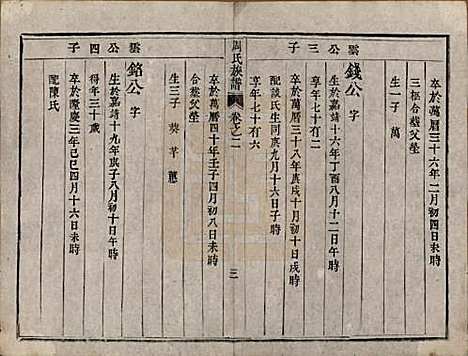 卒於萬曆三十六年二月初四日未時
三柩合葬父塋
生一子 萬
雲公三子
錢公 字
生於嘉靖十六年丁酉八月十二日午時
享年七十有二
卒於萬曆三十八年庚戌十月初十日戌時
配談氏生同庚九月十六日子時
享年七十有六
周氏族譜 卷之二 三
卒於萬曆四十年壬子四月初八日未時
合葬父塋
生三子 葵 芊 蕙
雲公四子
銘公 字
生於嘉靖十九年庚子八月初十日午時
得年三十歲
卒於隆慶三年己巳四月十六日未時
配陳氏